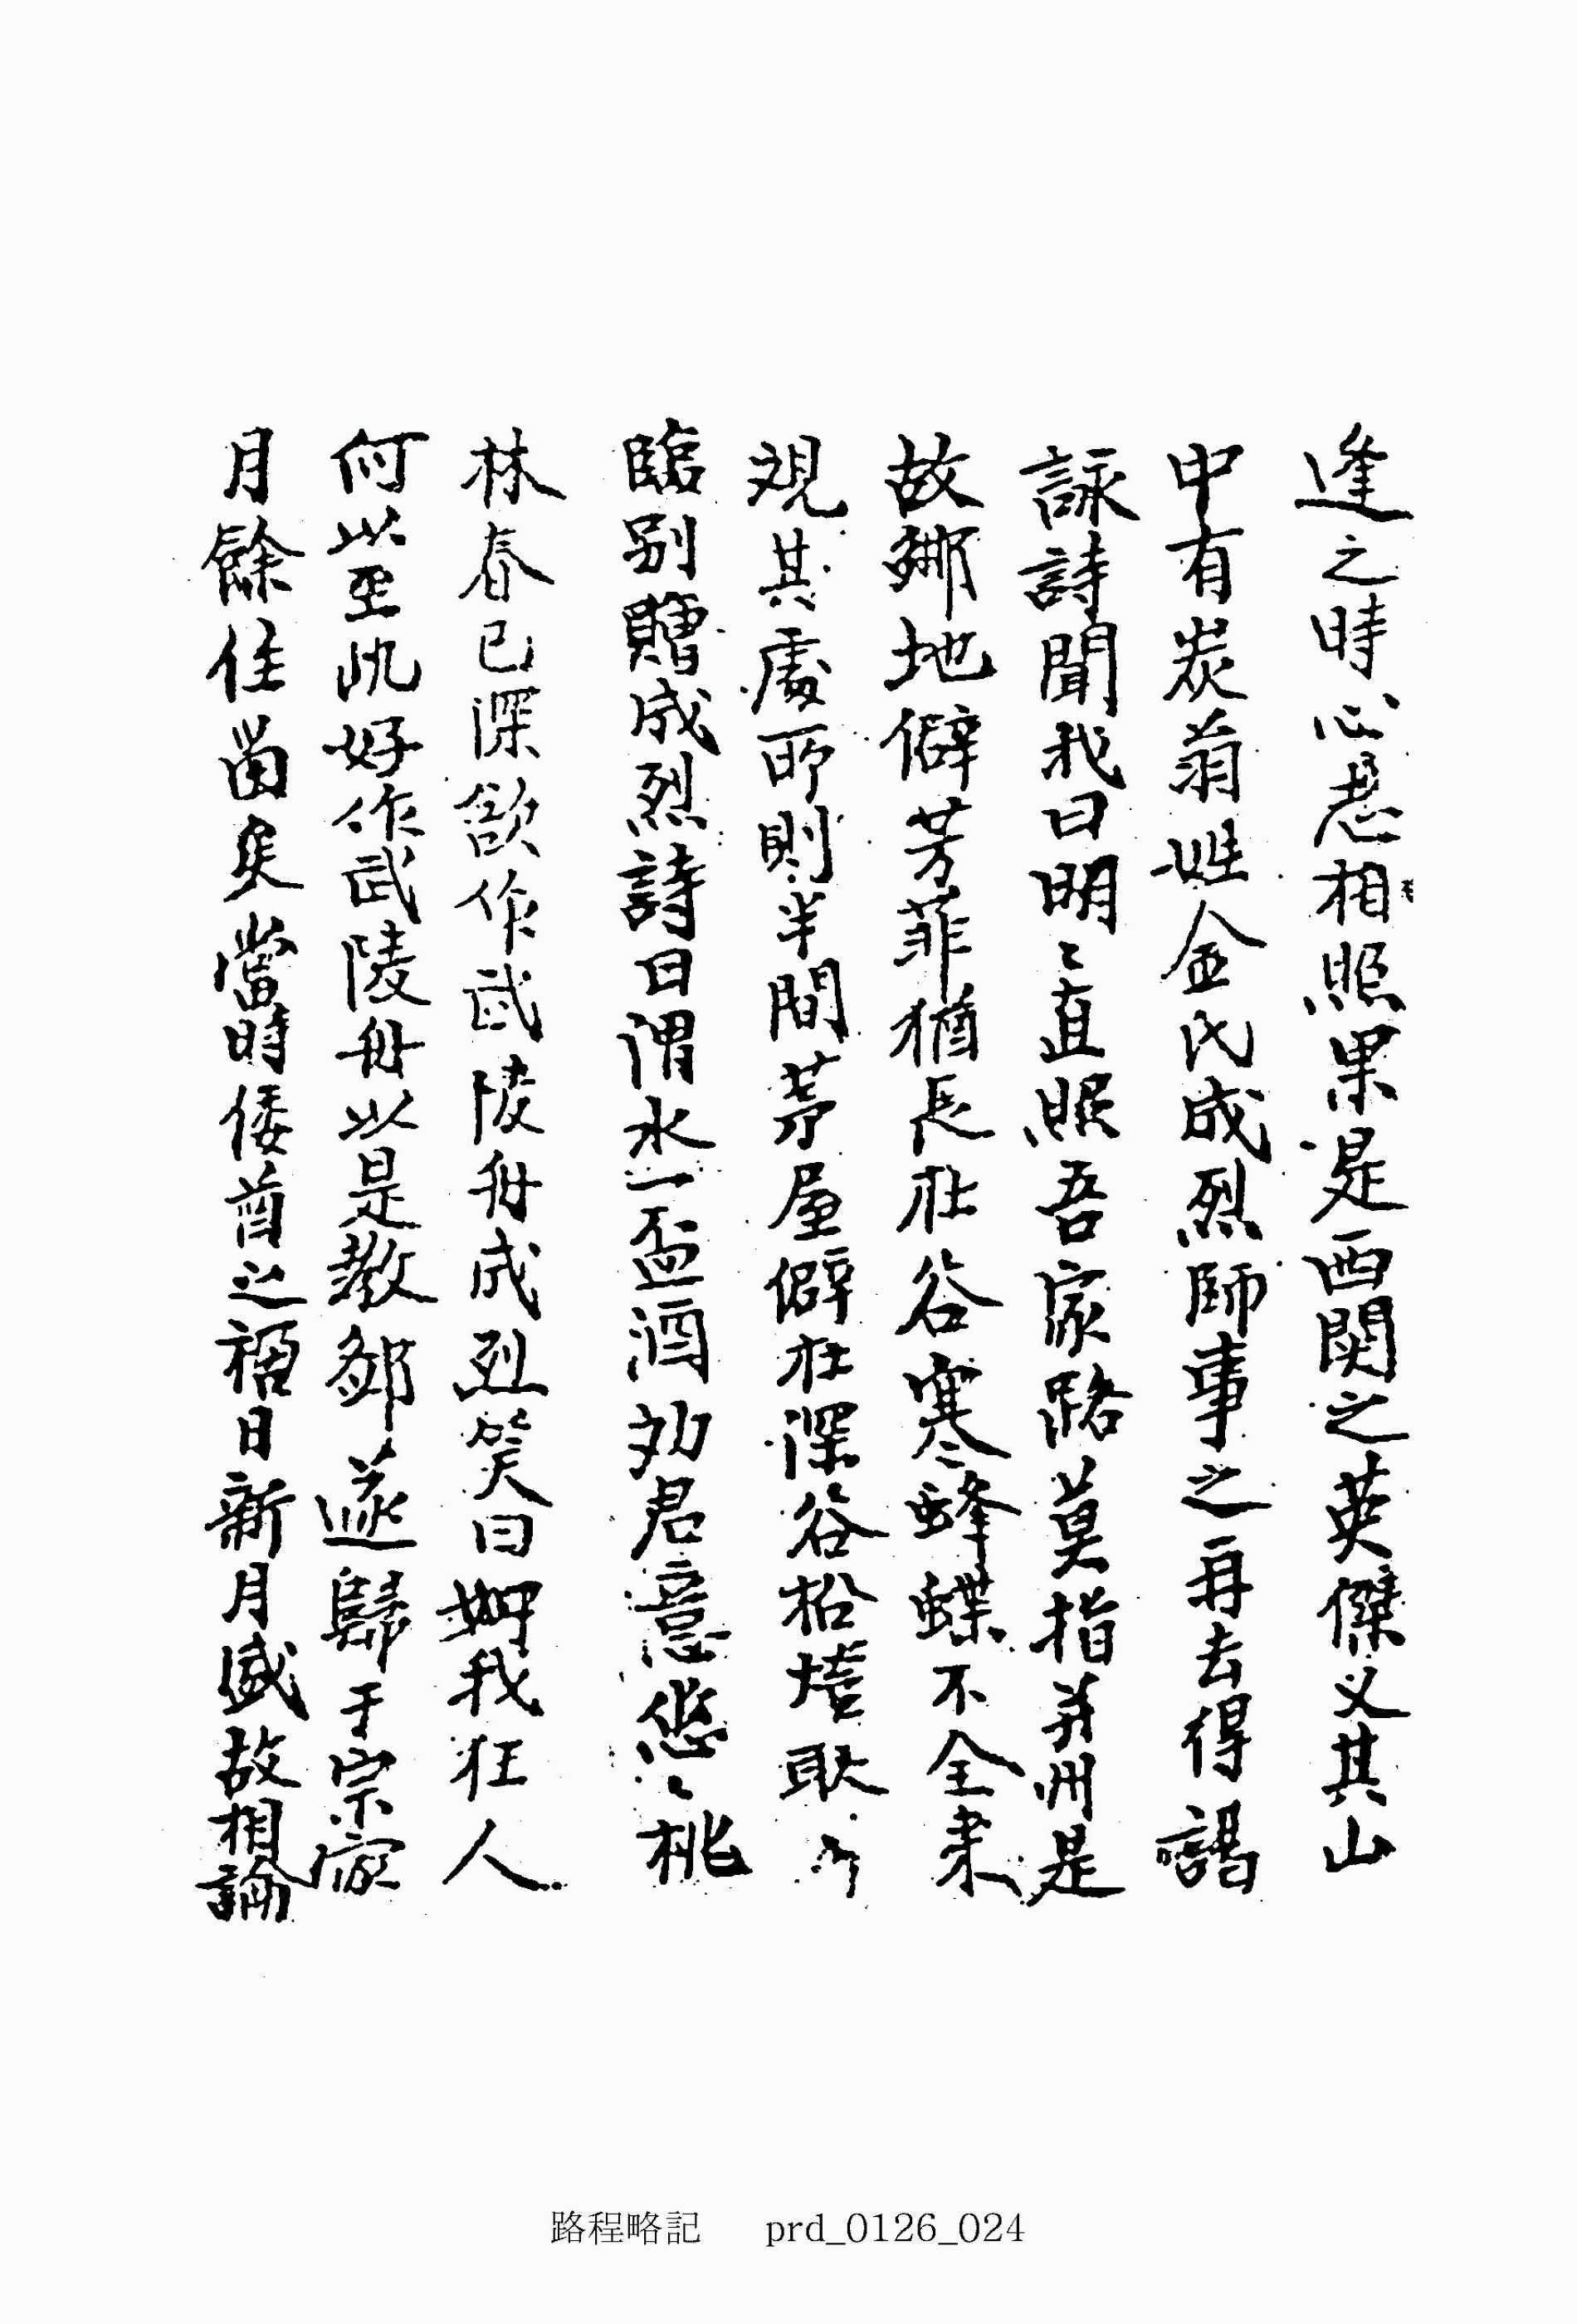 逢之時心志相照果是西関之英傑又其山
中有炭翁姓金氏成烈師事之再去得謁
詠詩聞我曰明〻直照吾家路莫指并州是
故鄕地僻芳菲猶長在谷寒蜂蝶不全來
覌其處所則半間茅屋僻在深谷松㯖耿
臨別贈成烈詩曰渭水一盃酒劝君意悠〻桃
林春已深欲作武陵舟成烈笑曰如我狂人
何以至此好作武陵舟以是敎鄙遂歸于宗家
月餘住留矣當時倭酋之禍日新月盛故相論
路程略記 prd_0126_024